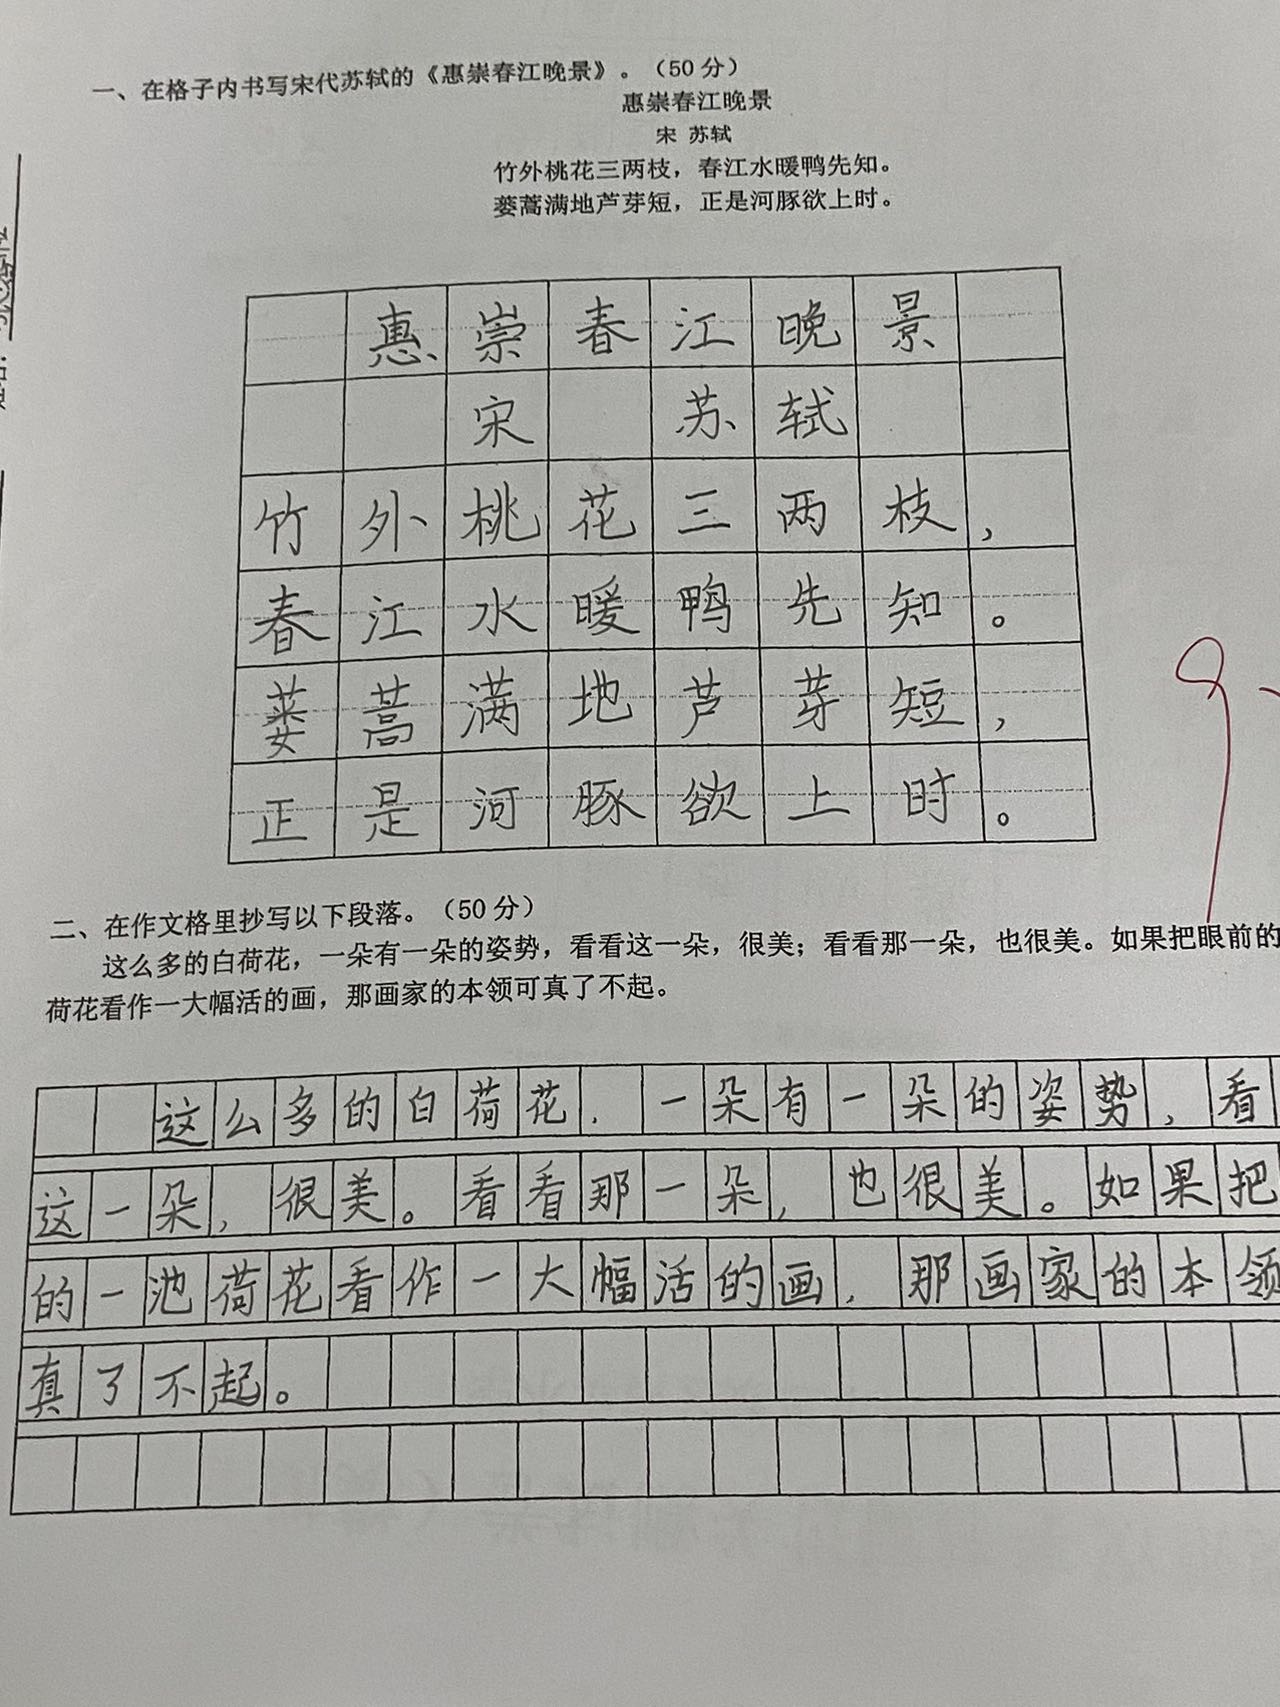 一、在格子内书写宋代苏轼的《惠崇春江晚景》。（50分）
惠崇春江晚景
宋 苏轼
竹外桃花三两枝，春江水暖鸭先知。
蒌蒿满地芦芽短，正是河豚欲上时。
惠崇春江晚景
宋 苏轼
竹外桃花三两枝，
春江水暖鸭先知。
蒌蒿满地芦芽短，
正是河豚欲上时。
二、在作文格里抄写以下段落。（50分）
这么多的白荷花，一朵有一朵的姿势，看看这一朵，很美；看看那一朵，也很美。如果把眼前的
荷花看作一大幅活的画，那画家的本领可真了不起。
这么多的白荷花，一朵有一朵的姿势，看
这一朵，很美。看看那一朵，也很美。如果把
的一池荷花看作一大幅活的画，那画家的本领
真了不起。